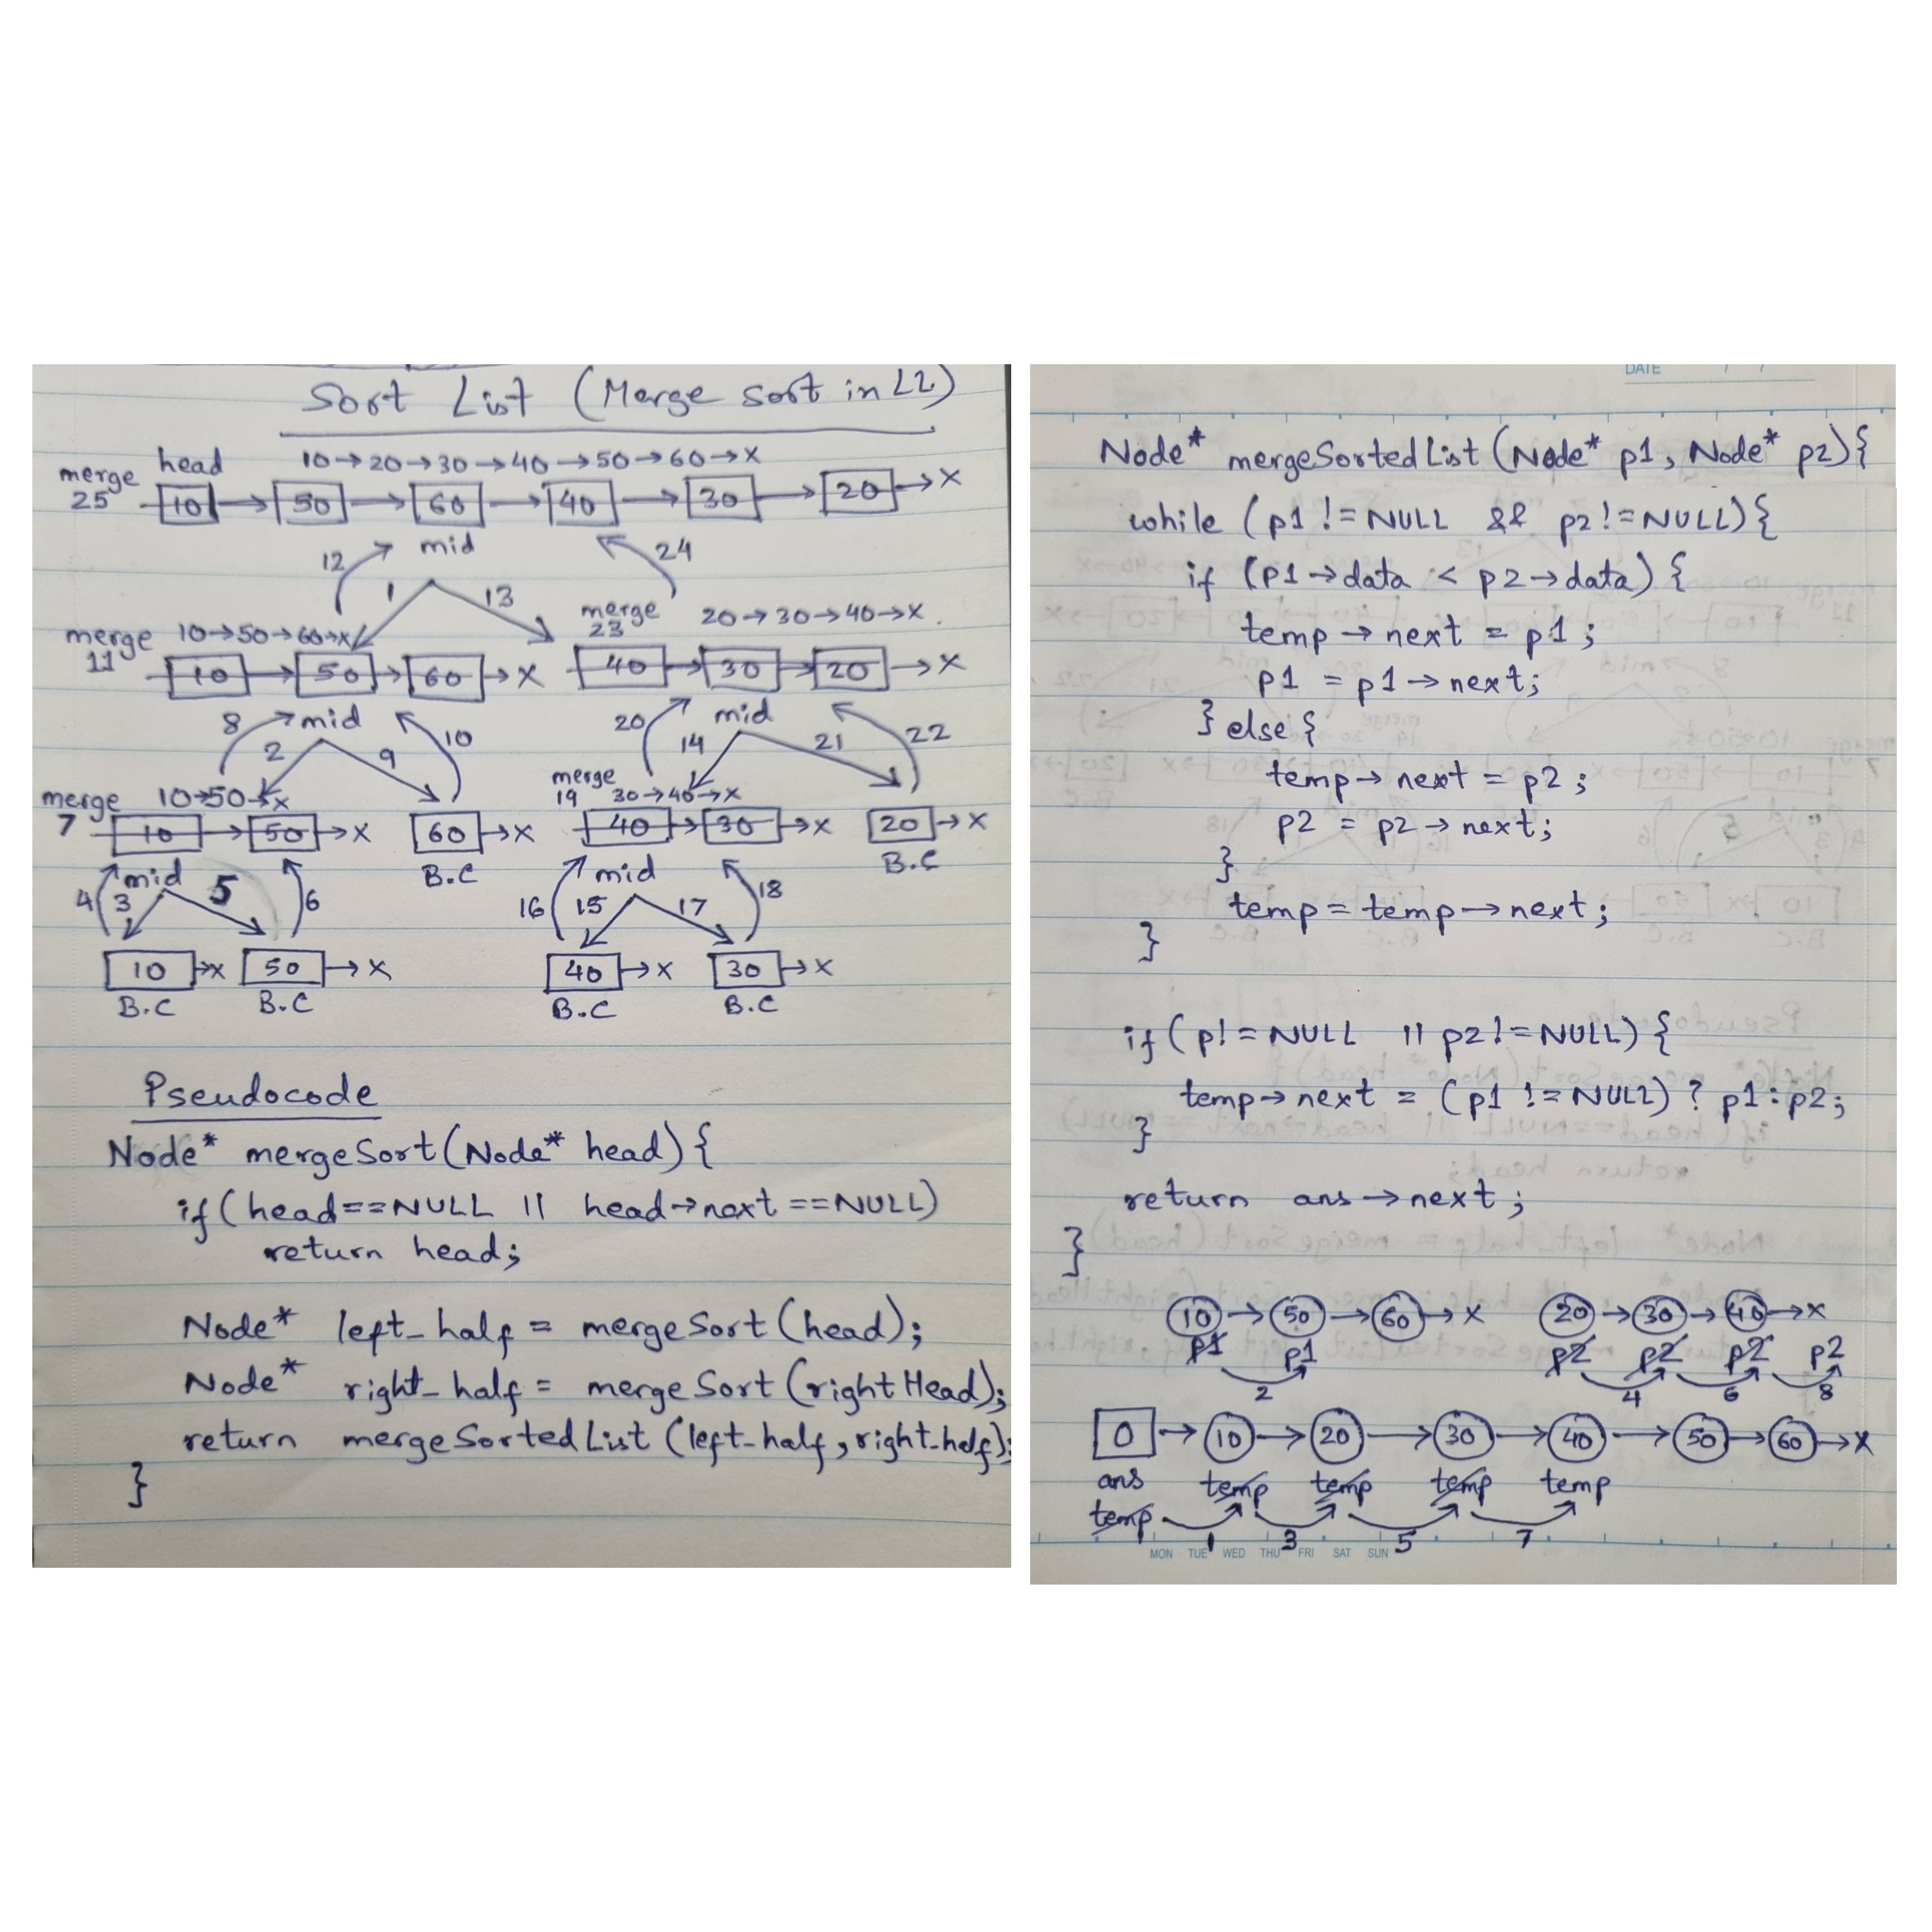 Sort List (Merge sort in LL)
head 10→20→30→40→50→60→X
merge
25 10 → 50 → 60 → 40 → 30 → 20 → X
mid
12 24
1 13
merge 10→50→60→X
11
merge 20→30→40→X
23
10 → 50 → 60 → X 40 → 30 → 20 → X
mid mid
8 2 9 10 20 14 21 22
merge 10→50→X
7
merge
19 30→40→X
10 → 50 → X 60 → X 40 → 30 → X 20 → X
B.C B.C
mid mid
4 3 5 6 16 15 17 18
10 →X 50 → X 40 → X 30 → X
B.C B.C B.C B.C
Pseudocode
Node* mergeSort(Node* head){
if(head==NULL || head→next ==NULL)
return head;
Node* left_half = mergeSort(head);
Node* right_half = mergeSort(rightHead);
return mergeSortedList(left_half, right_half);
}
DATE / /
Node* mergeSortedList (Node* p1, Node* p2){
while (p1 != NULL && p2 != NULL){
if (p1→data < p2→data){
temp→next = p1;
p1 = p1→next;
} else{
temp→next = p2;
p2 = p2→next;
}
temp = temp→next;
}
if(p!=NULL || p2!=NULL){
temp→next = (p1 != NULL) ? p1:p2;
}
return ans→next;
}
10 → 50 → 60 → X 20 → 30 → 40 → X
p1 p1 p2 p2 p2 p2
2 4 6 8
0 → 10 → 20 → 30 → 40 → 50 → 60 → X
ans temp temp temp temp
temp
1 3 5 7
MON TUE WED THU FRI SAT SUN